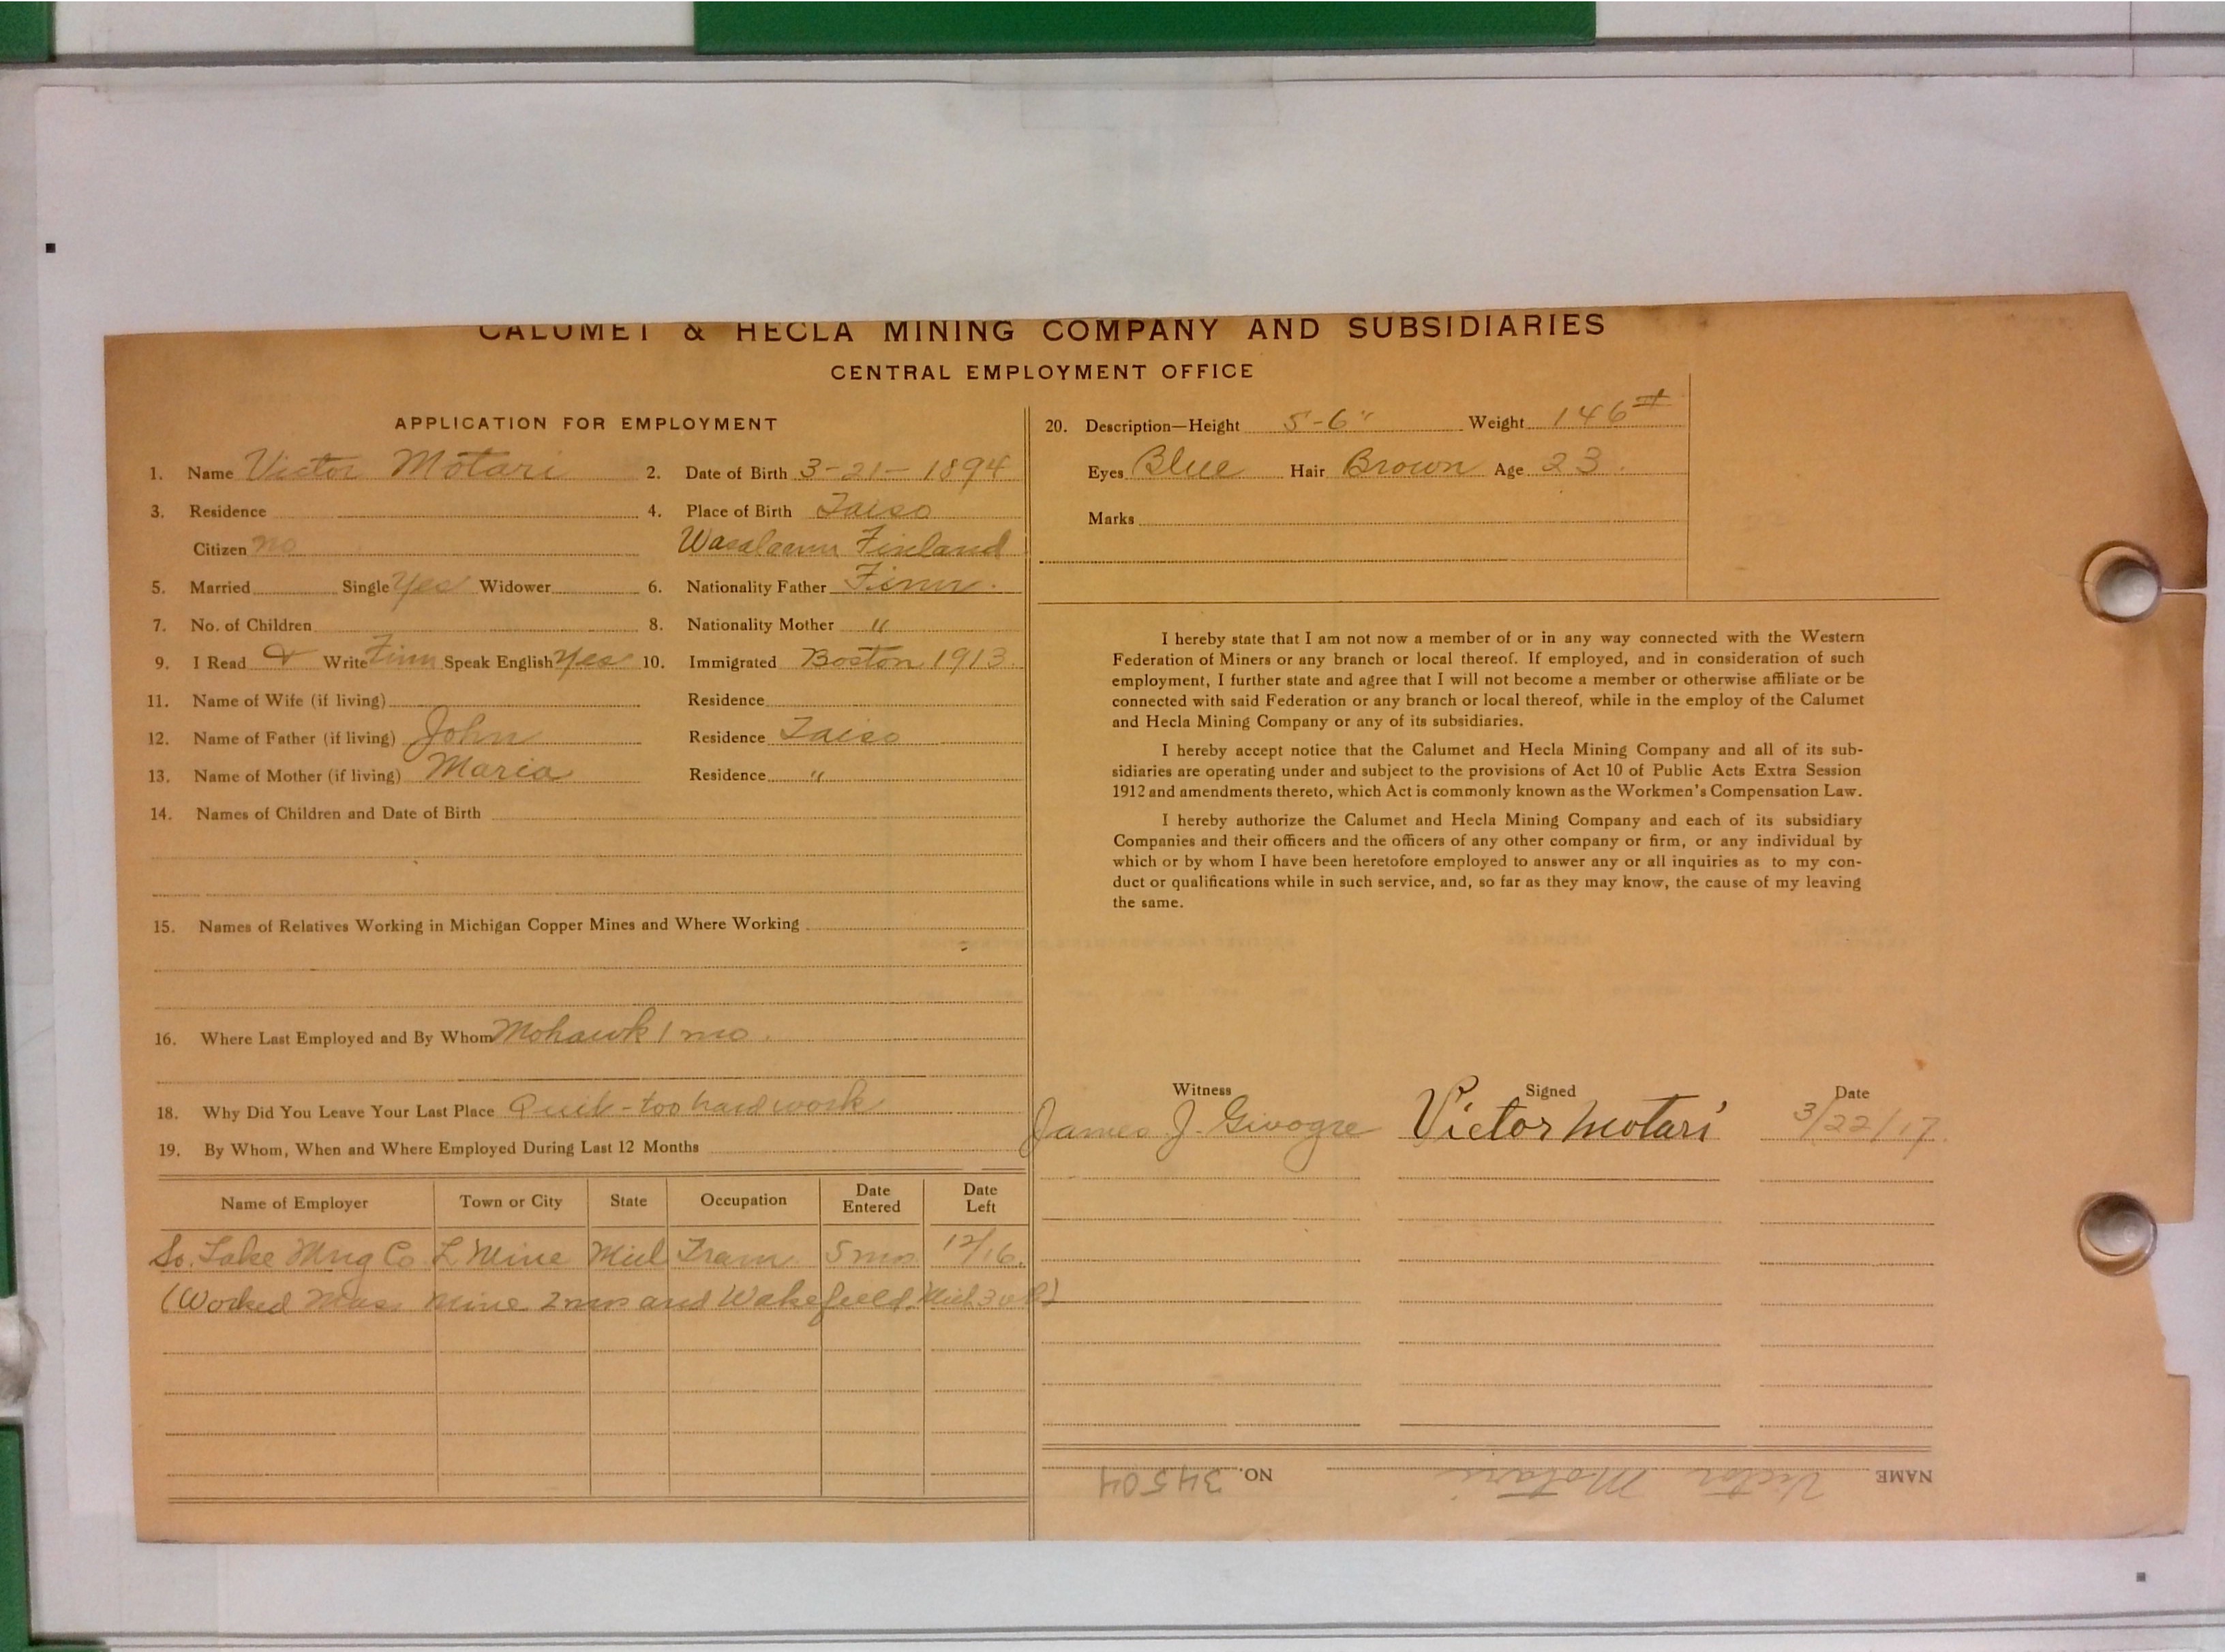 CALUMET & HECLA MINING COMPANY AND SUBSIDIARIES
CENTRAL EMPLOYMENT OFFICE
APPLICATION FOR EMPLOYMENT
1. Name Victor Motari 2. Date of Birth 3-21-1894
3. Residence 4. Place of Birth
Citizen no Finland
5. Married Single Yes Widower 6. Nationality Father Finn.
7. No. of Children 8. Nationality Mother "
9. I Read & Write Finn Speak English Yes 10. Immigrated Boston 1913.
11. Name of Wife (if living) Residence
12. Name of Father (if living) John Residence
13. Name of Mother (if living) Maria Residence "
14. Names of Children and Date of Birth
15. Names of Relatives Working in Michigan Copper Mines and Where Working
16. Where Last Employed and By Whom Mohawk 1 mo.
18. Why Did You Leave Your Last Place Quit - too hard work
19. By Whom, When and Where Employed During Last 12 Months
Name of Employer Town or City State Occupation Date Entered Date Left
So. Lake Mng Co Mine Tram 5 mos 12/16.
(Worked Mass Mine 2 mos and Wakefield, Mich 3
20. Description—Height 5-6" Weight 146#
Eyes Blue Hair Brown Age 23.
Marks
I hereby state that I am not now a member of or in any way connected with the Western
Federation of Miners or any branch or local thereof. If employed, and in consideration of such
employment, I further state and agree that I will not become a member or otherwise affiliate or be
connected with said Federation or any branch or local thereof, while in the employ of the Calumet
and Hecla Mining Company or any of its subsidiaries.
I hereby accept notice that the Calumet and Hecla Mining Company and all of its sub-
sidiaries are operating under and subject to the provisions of Act 10 of Public Acts Extra Session
1912 and amendments thereto, which Act is commonly known as the Workmen's Compensation Law.
I hereby authorize the Calumet and Hecla Mining Company and each of its subsidiary
Companies and their officers and the officers of any other company or firm, or any individual by
which or by whom I have been heretofore employed to answer any or all inquiries as to my con-
duct or qualifications while in such service, and, so far as they may know, the cause of my leaving
the same.
Witness Signed Date
James J. Victor Motari 3/22/17.
NAME Victor Motari NO. 34504